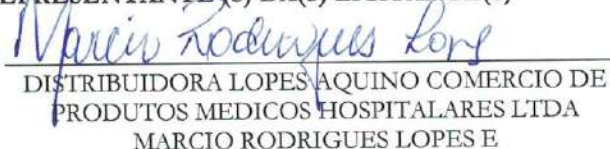 Marcio Rodrigues Lopes
DISTRIBUIDORA LOPES AQUINO COMERCIO DE
PRODUTOS MEDICOS HOSPITALARES LTDA
MARCIO RODRIGUES LOPES E